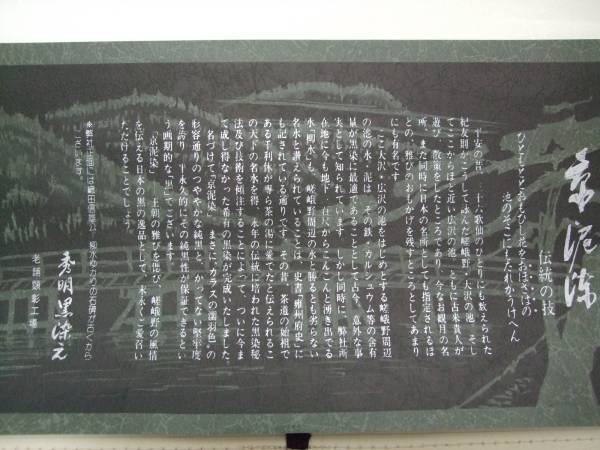 京泥染
伝統の技
ひともとゝおもひし花をおほさはの
池のそこにもたれかうけへん
平安の昔、三十六歌仙のひとりにも数えられた
紀友則がこうして詠んだ嵯峨野、大沢の池。そし
てここからほど近い広沢の池。ともに古来貴人が
遊び、散策をしたところであり、今なお観月の名
所、また同時に日本の名所としても指定されるほ
どの、雅びのおもかげを残すところとしてあまり
にも有名です。
ここ大沢、広沢の池をはじめとする嵯峨野周辺
の池の水・泥は、その鉄・カルシュウム等の含有
量が黒染に最適であることとして古今、意外な事
実として知られています。しかし同時に、弊社所
在地に今も地下 百尺からこんこんと湧き出でる
水「柳水」も、嵯峨野周辺の水に勝るとも劣らない
名水と讃えられていることは、史書「雍州府史」に
も記されている通りです。その昔、茶道の始祖で
ある千利休が専ら茶の湯に愛でたと伝えられるこ
の天下の名水を得、永年の伝統に培われた黒染秘
法及び技術を傾注することによって、ついに今ま
で成し得なかった希有の黒染が完成いたしました。
名づけて「京泥染」。まさに“カラスの濡羽色”の
形容通りのつややかな純黒と、かつてない堅牢度
を誇り、半永久的にその純黒性が保証できるとい
う画期的な「黒」でございます。
「京泥染」――王朝の雅びを偲び、嵯峨野の風情
を伝える日本の黒の逸品として、末永くご愛召い
ただけることでしょう。
※弊社正門には織田信雄公、柳水ゆかりの石碑が古くから
ございます。
老舗顕彰工場
秀明黒染元